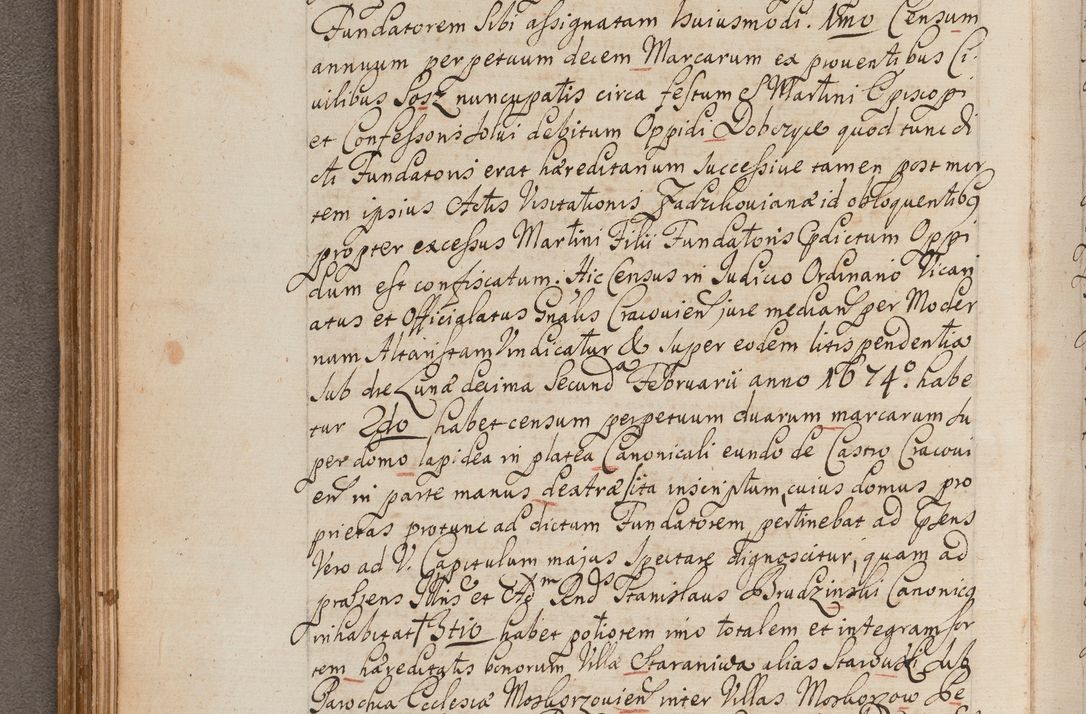 Fundatorem sibi assignatam huiusmodi. 1mo Censum
annuum perpetuum decem Marcarum ex prouentibus Ci-
uilibus Sosz nuncupatis circa festum S Martini Episcopi
et Confessoris solui debitum Oppidi Dobczyce quod tunc di
cti Fundatoris erat hæreditarium successiue tamen post mor
tem ipsius Actis Visitationis Zadzikouianæ id obloquentibq
propter excessus Martini Filii Fundatoris Opdictum Oppi
dum est confiscatum. Hic Census in Iudicio Ordinario Vicari
atus et Officialatus Gnalis Cracouien iure median per Moder
num Altaristam Vindicatur & super eodem litis pendentia
sub die Lunæ decima Secunda Februarii anno 1674o habe
tur 2do habet censum perpetuum duarum marcarum su
per domo lapidea in platea Canonicali eundo de Castro Cracoui
en in parte manus dextræ sita inscriptum, cuius domus pro
prietas pro tunc ad dictum Fundatorem pertinebat ad psens
Vero ad V. Capitulum majus spectare dignoscitur, quam ad
præsens Illris et Adm Rnds Stanislaus Brudzinski Canonicq
inhabitat 3tio habet potiorem imo totalem et integram sor
tem hæreditatis bonorum Villæ Staraniwa alias Stawiski sub
Parochia Ecclesiæ Moskorzouien inter Villas Moskorzow Be